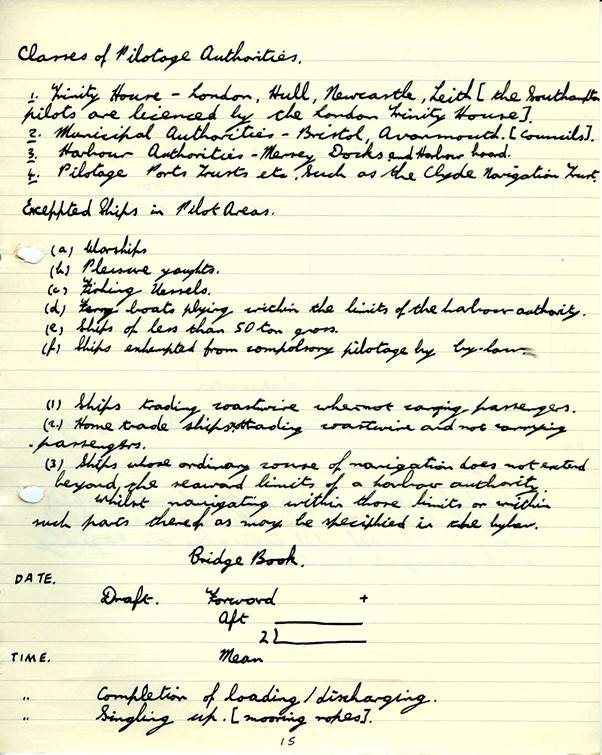 Classes of Pilotage Authorities.
1. Trinity House - London, Hull, Newcastle, Leith [ the Southampton
pilots are licenced by the London Trinity House].
2. Municipal Authorities - Bristol, Avonmouth. [Councils].
3 Harbour Authorities - Mersey Docks and Harbour board.
4. Pilotage Ports Trusts etc. Such as the Clyde Navigation Trust.
Exceppted Ships in Pilot Areas.
(a) Warships
(b) Pleasure yaughts.
(c) Fishing Vessels.
(d) Ferry boats plying within the limits of the harbour authority.
(e) Ships of less than 50 ton gross.
(f) Ships exhempted from compolsory pilotage by by-law
(1) Ships trading coastwise when not carrying passengers.
(2) Home trade ships trading coastwise and not carrying
passengers.
(3) Ships whose ordinary course of navigation does not extend
beyond the seaward limits of a harbour authority
whilst navigating within those limits or within
such parts thereof as may be specified in the bylaw.
Bridge Book.
DATE.
Draft. Forward +
Aft
2
TIME. Mean
" Completion of loading / discharging.
" Singling up. [mooring ropes].
15